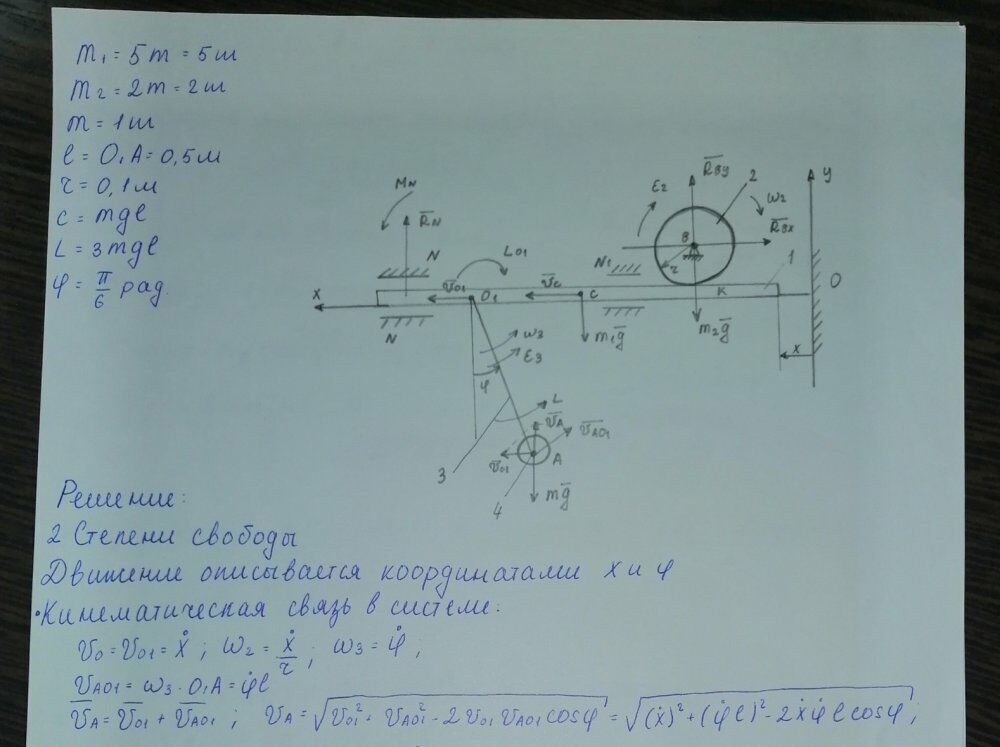 m₁ = 5m = 5ш
m₂ = 2m = 2ш
m = 1ш
ℓ = O₁A = 0,5м
r = 0,1м
c = mgℓ
L = 3mgℓ
φ = π/6 рад.
M_N
R̅_N
N
N
x
v̅_O1
O₁
L_O1
v̅_c
C
m₁g̅
N₁
ε₂
R̅_By
2
ω₂
B
R̅_Bx
r
K
m₂g̅
1
y
O
x
ω₃
ε₃
φ
L
v̅_A
v̅_AO1
v̅_O1
A
3
4
mg̅
Решение:
2 Степени свободы
Движение описывается координатами x и φ
•Кинематическая связь в системе:
v_O = v_O1 = ẋ ; ω₂ = ẋ/r ; ω₃ = φ̇ ;
v_AO1 = ω₃ · O₁A = φ̇ℓ
v̅_A = v̅_O1 + v̅_AO1 ; v_A = √(v_O1² + v_AO1² - 2v_O1 v_AO1 cosφ) = √((ẋ)² + (φ̇ℓ)² - 2ẋφ̇ℓcosφ) ;